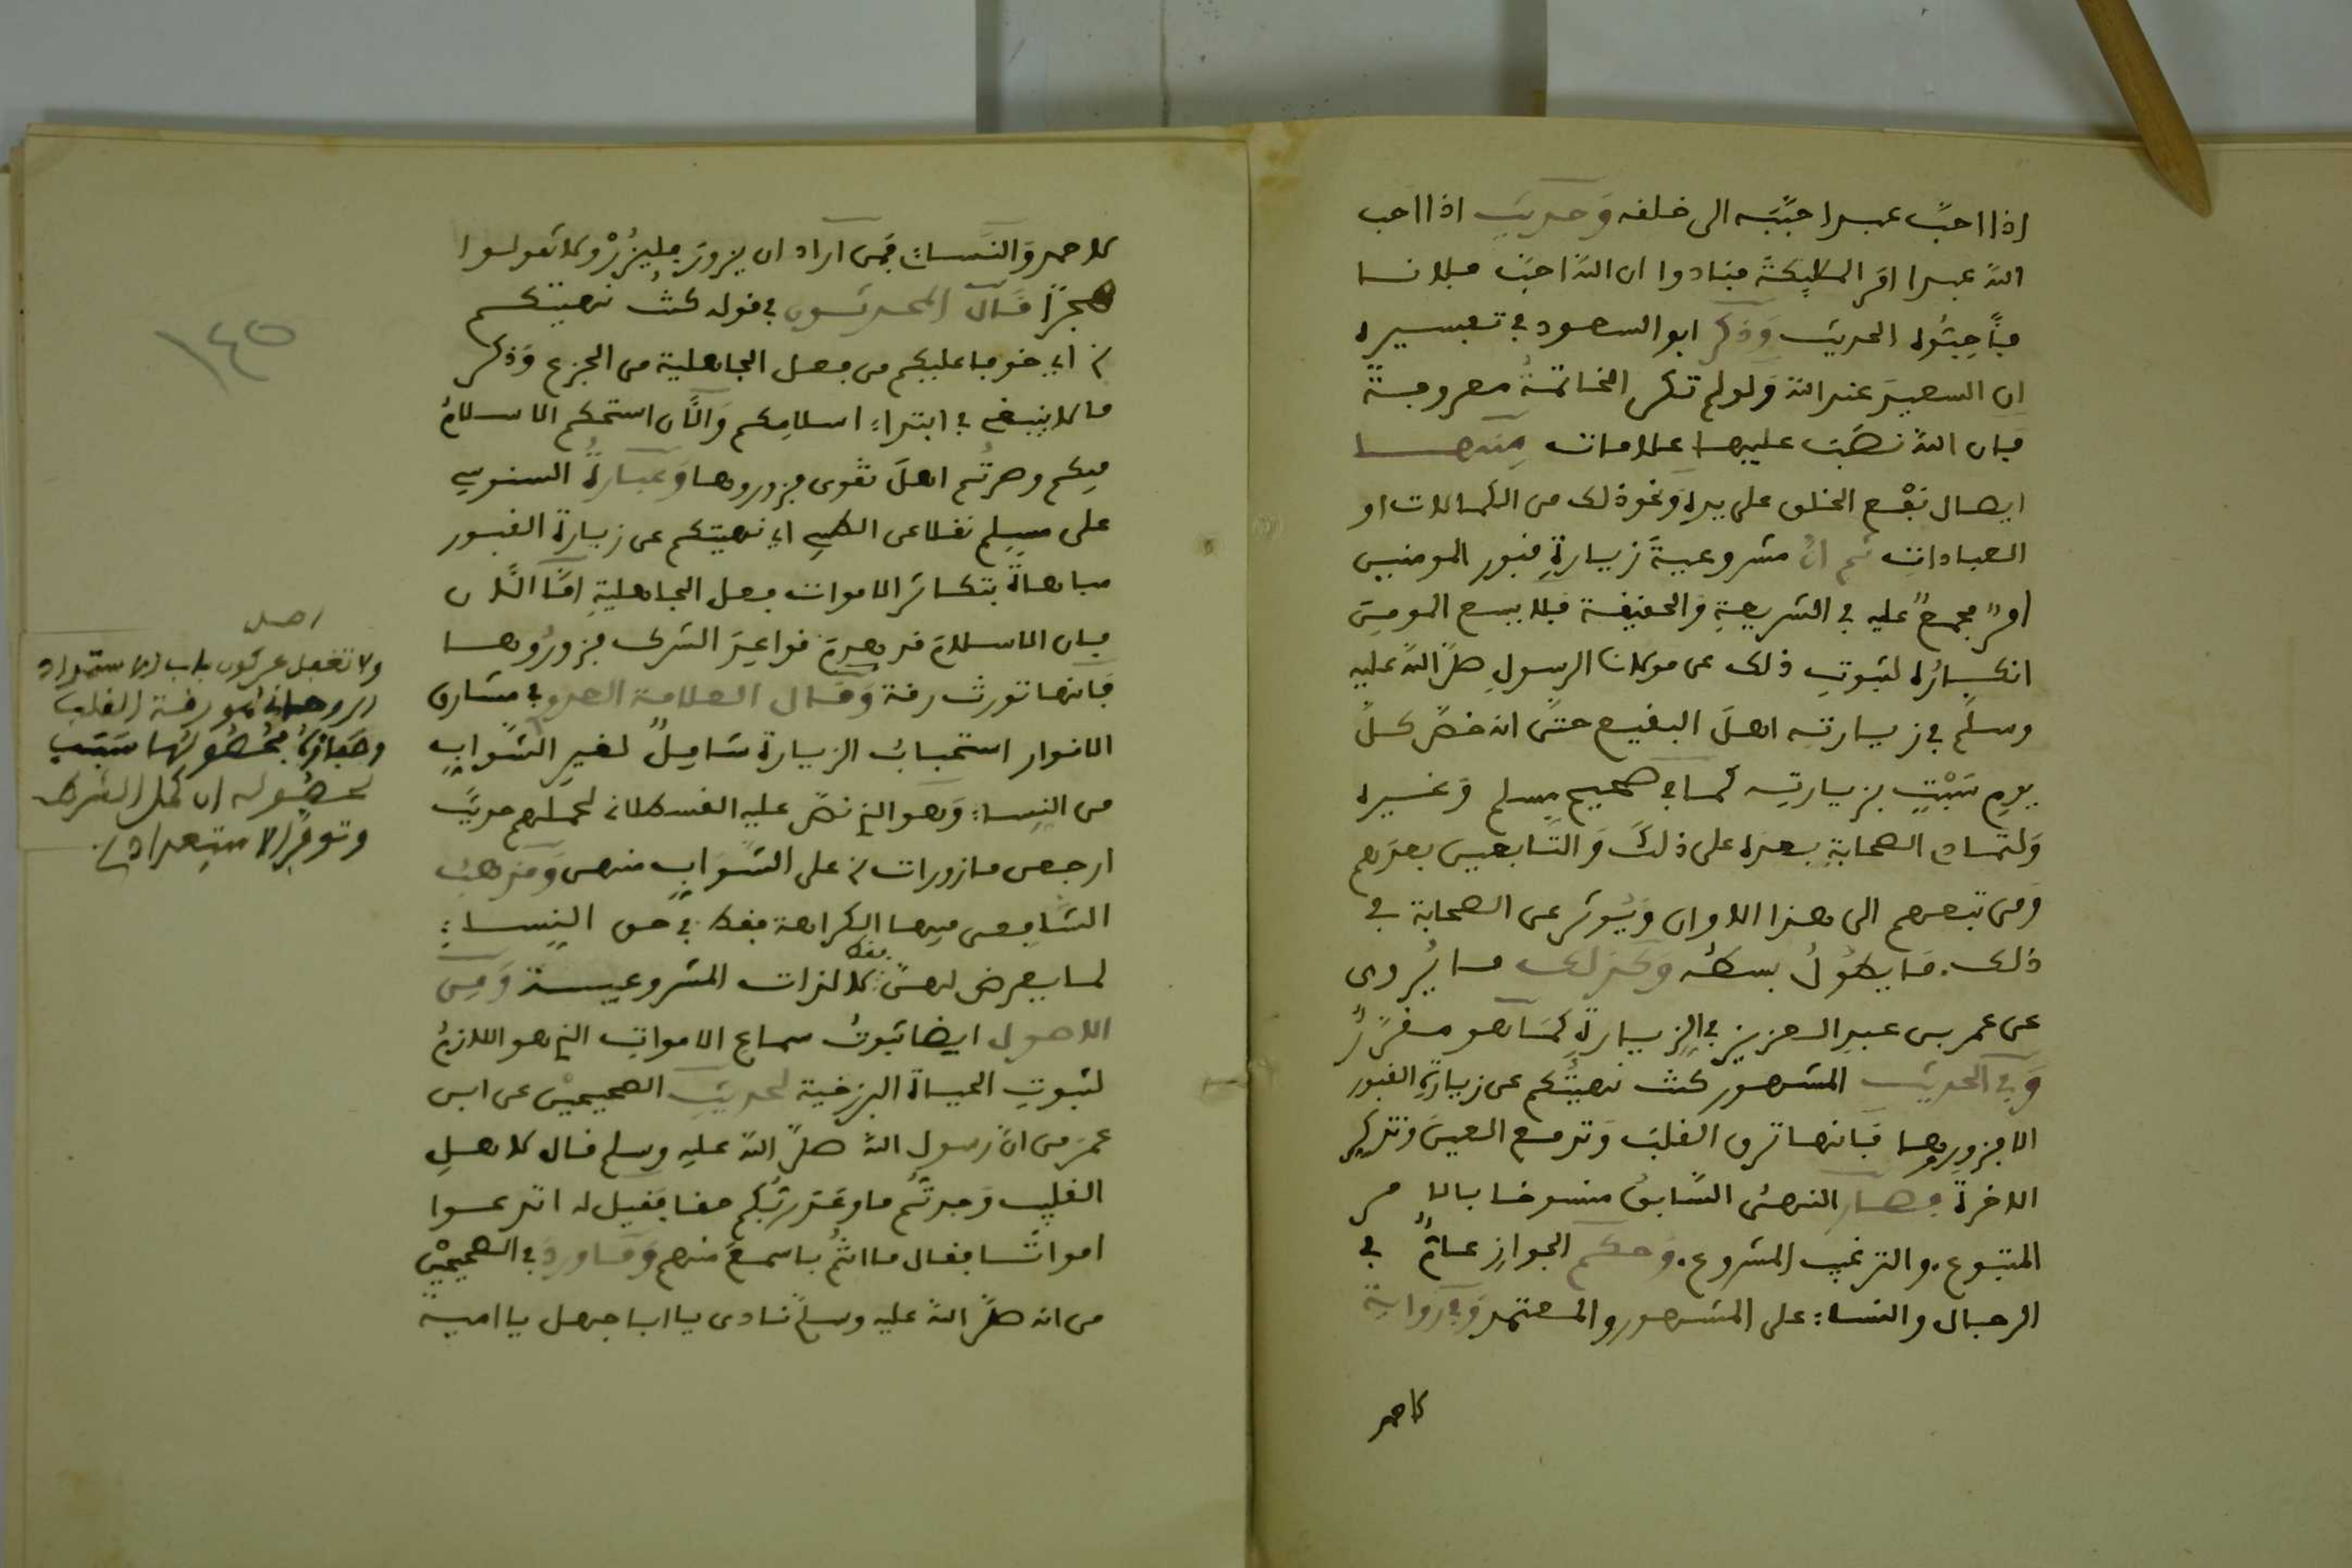 اذا احبّ عبدا حبّبه الى خلقه وحديث اذا احب
الله عبدا امر الملايكة فنادوا ان الله احبّ فلانا
فأحِبّوه الحديث وذكر ابو السعود في تفسيره
ان السعيد عند الله ولو لم تكن الخاتمةُ معروفة
فان الله نصَب عليها علامات منها
ايصال نفْع الخلق على يده ونحو ذلك من الكمالات او
العبادات ثم انّ مشروعيةَ زيارةِ قبور المومنين
امرٌ مجمعٌ عليه في الشريعةِ والحقيقة فلا يسع المومن
انكارُه لثبوتِ ذلك عن مولانا الرسولِ صلّى الله عليه
وسلّم في زيارته اهلَ البقيع حتّى انه خصّ كلّ
يومِ سَبْتٍ بزيارتِه كما في صحيح مسلم وغيره
ولتمادى الصحابةِ بعده على ذلك والتابعين بعدهم
ومن تبعهم الى هذا الاوان ويُوثر عن الصحابة في
ذلك. ما يطولُ بسطُه وكذلك ما يُروى
عن عمر بن عبد العزيز في الزيارةِ كما هو مقرّرٌ
وفي الحديث المشهور كنت نهيتُكم عن زيارةِ القبور
الا فزوروها فانها ترق القلبَ وتدمع العينَ وتذكِر
الاخرةَ فصار النهىُ السّابقُ منسوخا بالامر
المتبوع. والترغيب المشروع. وحكم الجوازِ عامٌّ في
الرجال والنساء على المشهور والمعتمد وفي رواية
لاحمد
لاحمد والنّساء فمن اراد ان يزور فليزُرْ ولا تقولوا
هجرًا قال المحدثون في قوله كنتُ نهيتكم
؞ اي خوفا عليكم من فعل الجاهلية من الجزع وذكر
ما لا ينبغي في ابتداء اسلامكم والآن استحكم الاسلامُ
فيكم وصرتُم اهلَ تقوى فزوروها وعبارةُ السنوسي
على مسلم نقلا عن الطيبي اي نهيتكم عن زيارةِ القبور
مباهاةً بتكاثر الاموات فعل الجاهليةِ امّا الآن
فان الاسلامَ قد هدمَ قواعدَ الشرك فزورُوها
فانها تورث رقة وقال العلامة العدوي في مشارق
الانوار استحبابُ الزيارة شامِلٌ لغير الشّوابِّ
من النساء وهو الذي نصّ عليه القسطلاني لحملهم حديثَ
ارجعن مازورات ؞ على الشّوابِّ منهن ومذهبُ
الشّافعي فيها الكراهة فقط في حق النساء
لما يعرض لهنّ فقط لا لذات المشروعية ومن
الاصول ايضا ثبوتُ سماع الامواتِ الذي هو اللازمُ
لثبوتِ الحياة البرزخية لحديث الصحيحيْن عن ابن
عمر من انّ رسول الله صلّى الله عليه وسلم قال لاهل
القليب وجدتُم ما وعَد ربُّكم حقا فقيل له اتدعوا
امواتًا فقال ما انتُم باسمعَ منهم وما وردَ في الصحيحيْن
من انه صلّى الله عليه وسلّم نادى يا ابا جهل يا امية
١٤٥
اصل
ولا تغفل عن كون باب الاستمداد
الروحاني هو رقة القلب
لحصُوله ان كمل الشرط
وتوفّر الاستعداد ؞